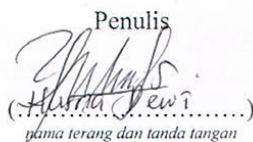 Penulis
(....Dewi....)
nama terang dan tanda tangan